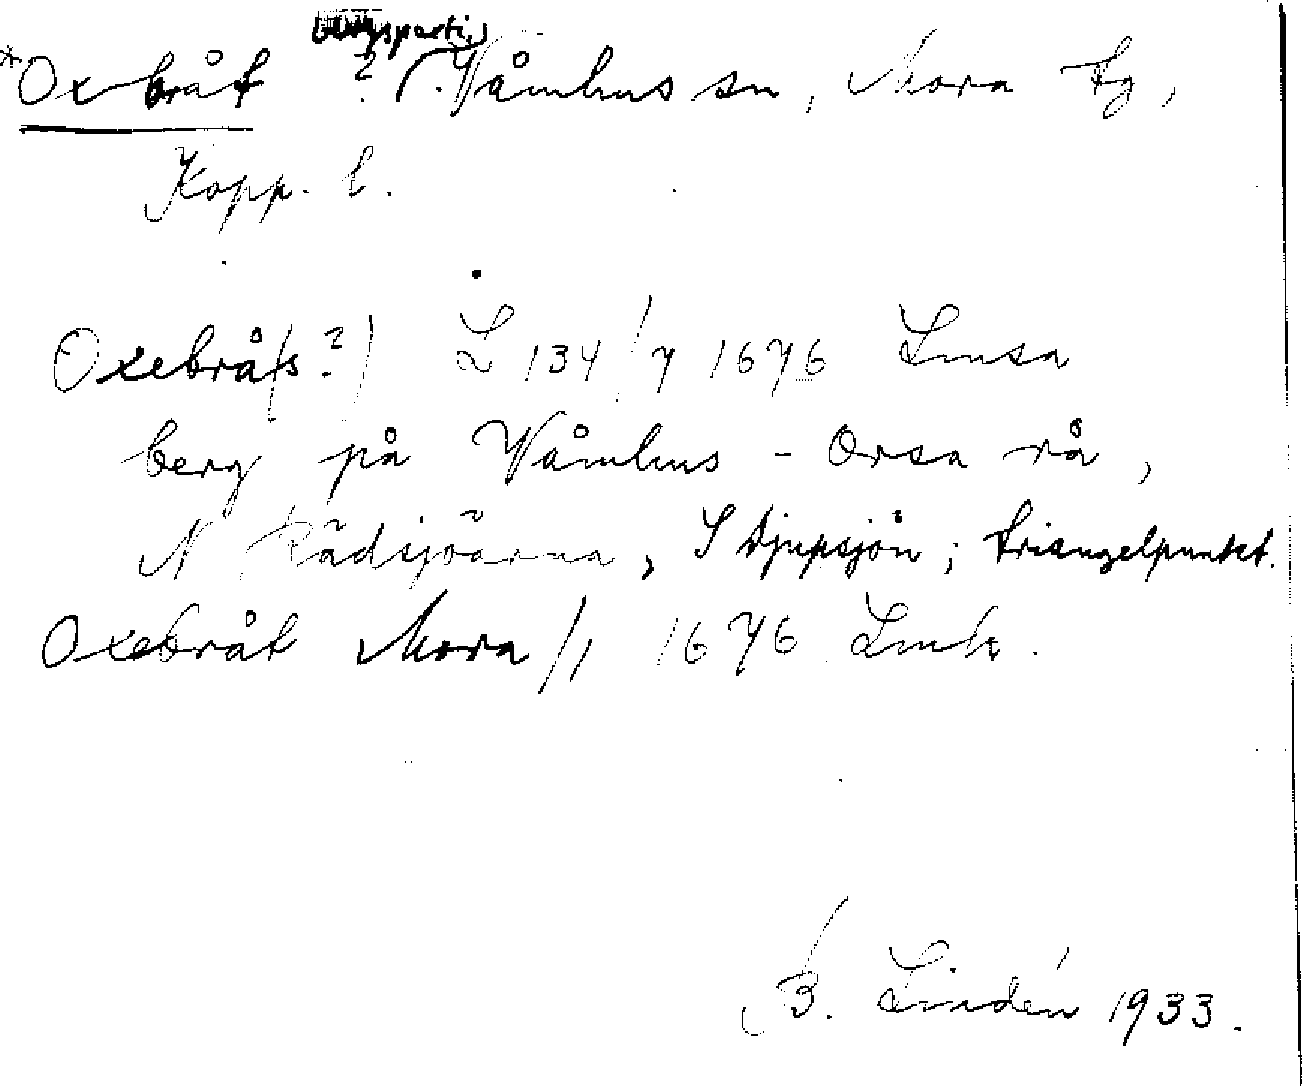 bergsparti
*Oxbråt ? (Våmhus sn, Mora tg,
Kopp. l.
Oxebrå(s?) L 134/7 1676 Lmsa
berg på Våmhus - Orsa rå,
N Rädsjöarna, S Djupsjön; triangelpunkt.
Oxebråt Mora/1 1676 Lmk.
B. Lindén 1933.